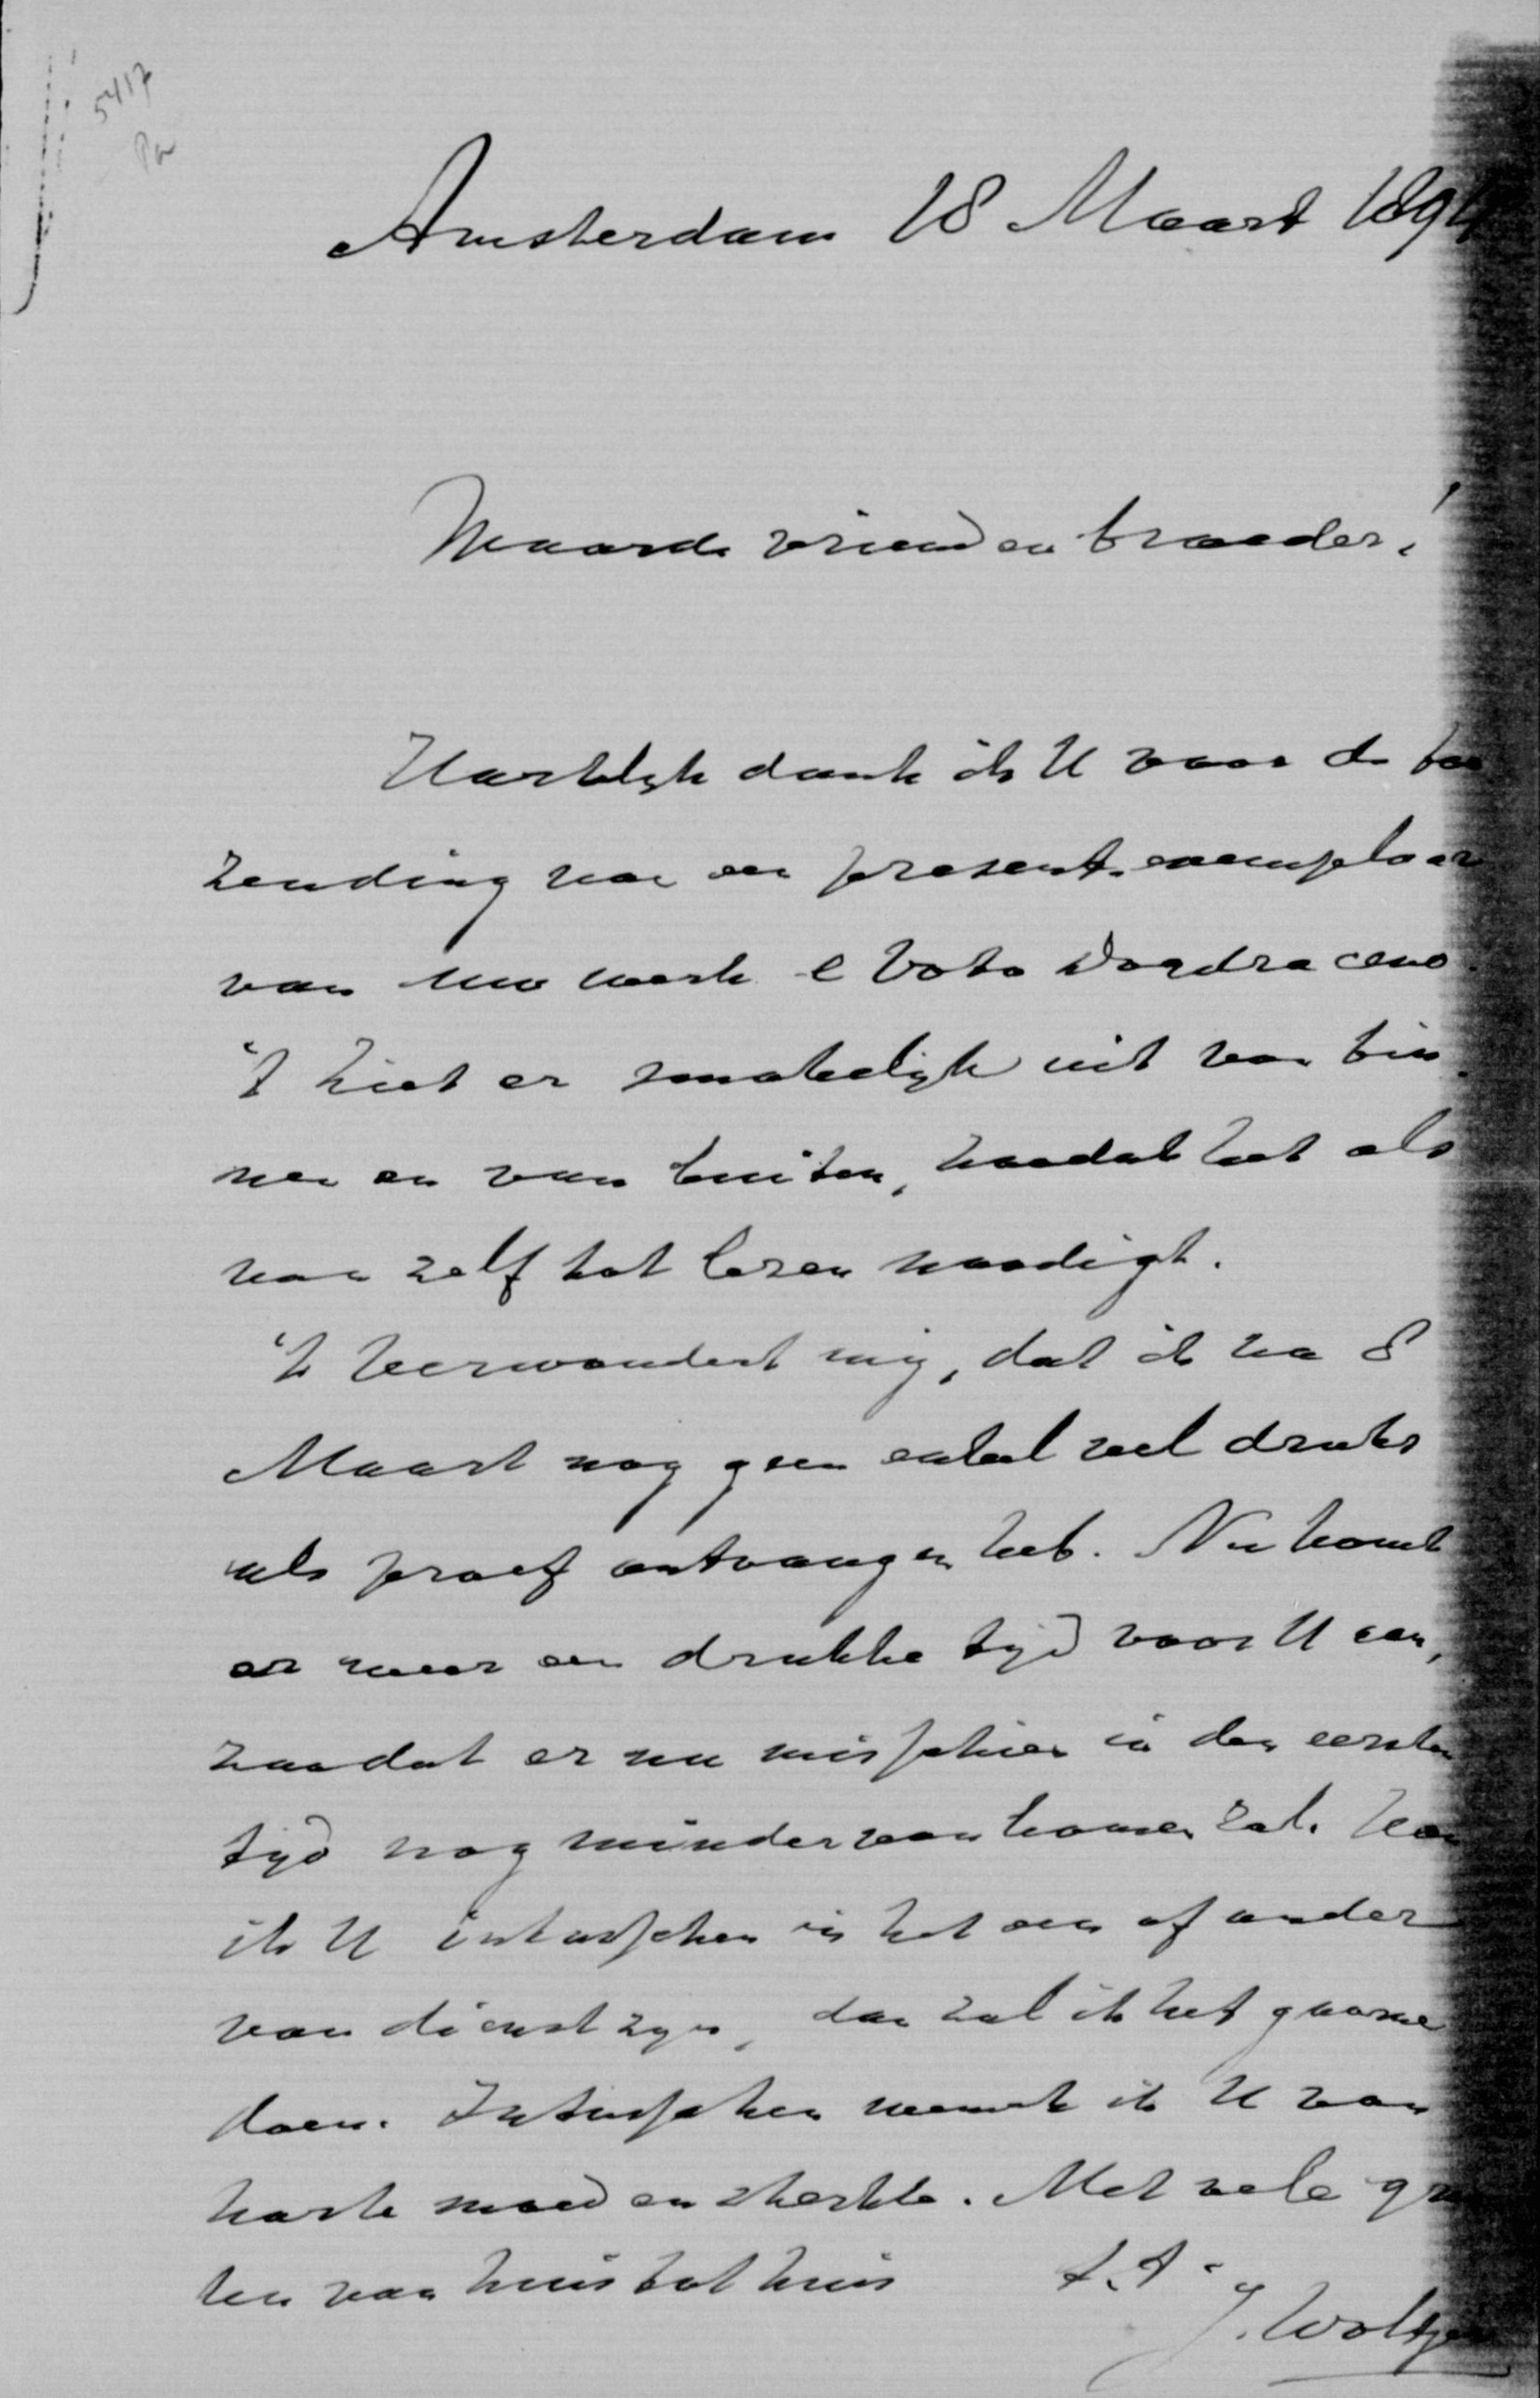 5417
Pa
Amsterdam 18 Maart 1894
Waarde vriend en broeder!
Hartelijk dank ik U voor de toe
zending van een present-exemplaar
van Uw werk E Voto Dordraceno.
't Ziet er smakelijk uit van bin
nen en van buiten, zoodat het als
van zelf tot lezen noodigt.
't Verwondert mij, dat ik na 8
Maart nog geen enkel vel druks
als proef ontvangen heb. Nu komt
er weer een drukke tijd voor U aan,
zoodat er nu misschien in den eersten
tijd nog minder van komen zal. Kan
ik U intusschen in het een of ander
van dienst zijn, dan zal ik het gaarne
doen. Intusschen wensch ik U van
harte moed en sterkte. Met vele groe
ten van huis tot huis t.t.
J. Woltjer